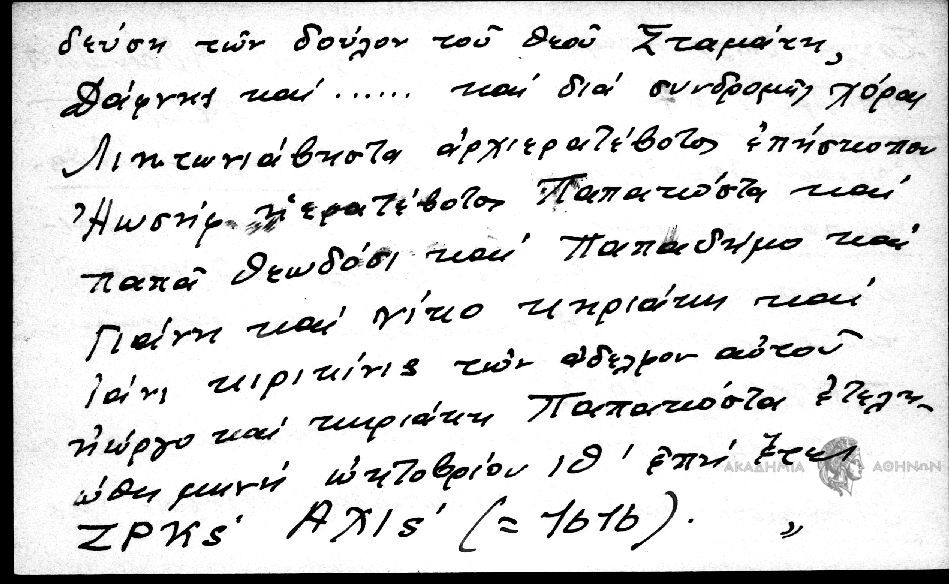 δεύση τῶν δούλον τοῦ θεοῦ Σταμάτη,
Δάφνης καί ...... καί διά συνδρομῆς χόρας
Λιητωνιάβηστα ἀρχιερατέβοτος ἐπήσκοπου
Ἠωσήφ ἡερατέβοτος Παπακόστα καί
παπᾶ θεωδόσι καί Παπαδήμο καί
Γιάνη καί νίκο κηριάκη καί
ἰάνι κιρικίνις τῶν ἀδελφον αὐτοῦ
ηιώργο καί κηριάκη Παπακόστα ἐτελη-
ώθη μηνή ὠκτοβρίου ιθ' ἐπή ἔτει
ΖΡΚς' ΑΧΙς' (= 1616). "
ΑΚΑΔΗΜΙΑ ΑΘΗΝΩΝ